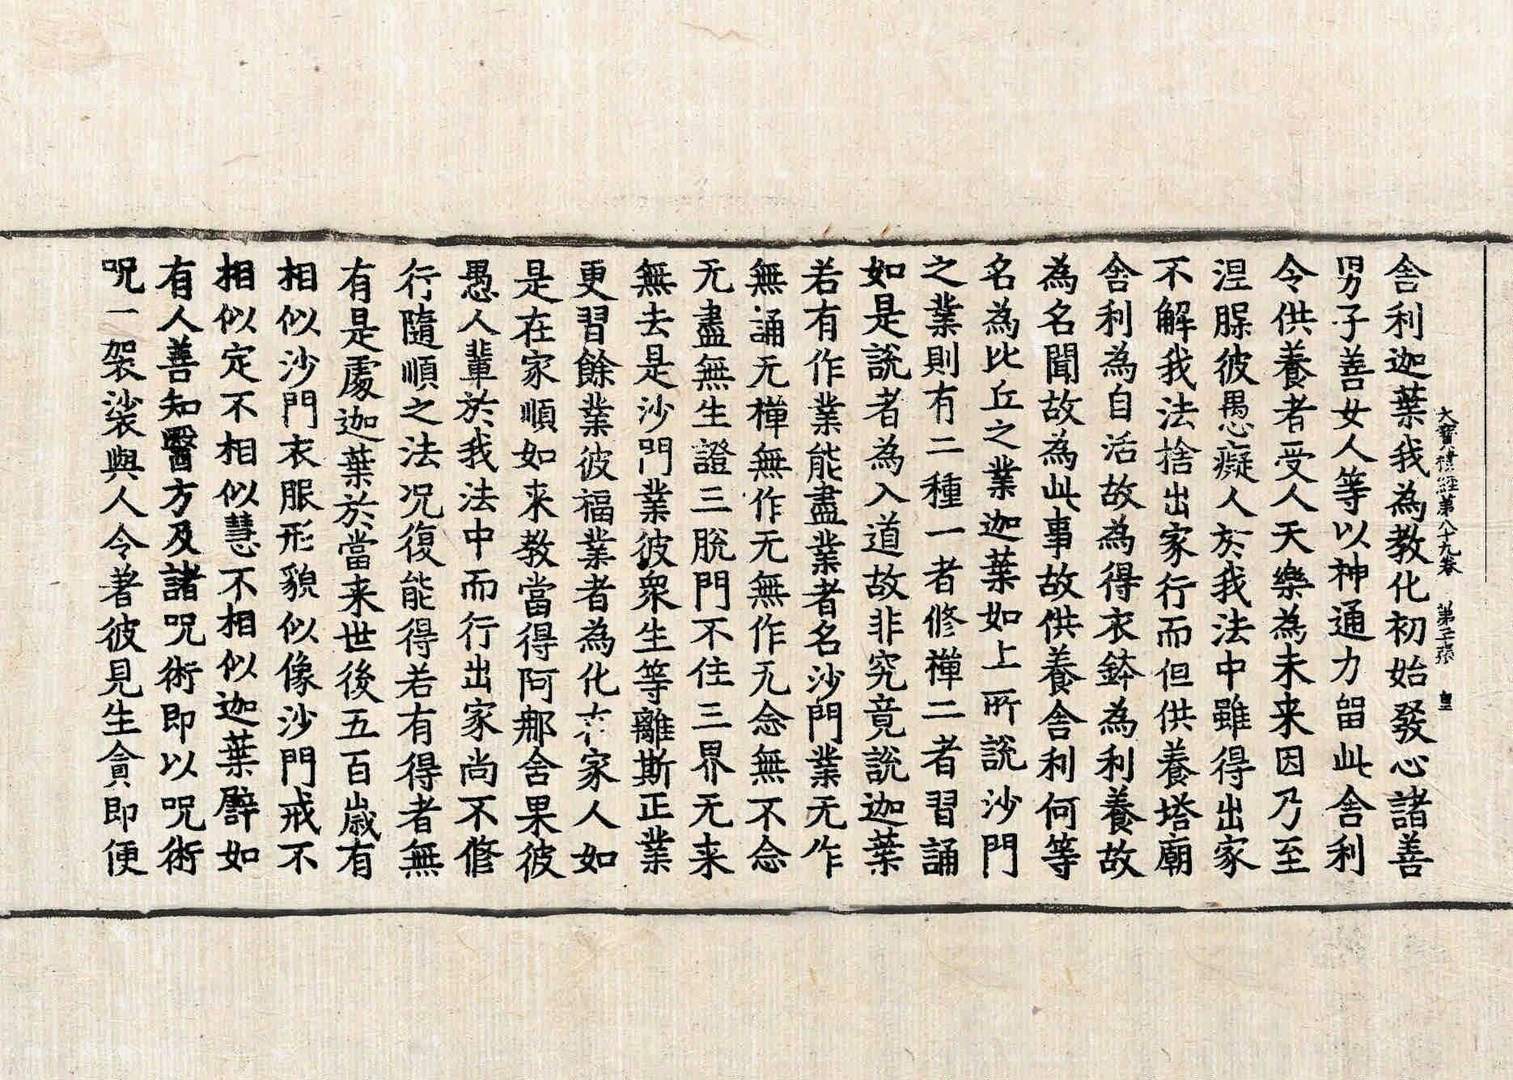 大寶積經第八十九卷 第二張 皇
舎利迦葉我為教化初始發心諸善
男子善女人等以神通力留此舎利
令供養者受人天樂為未来因乃至
涅槃彼愚癡人於我法中雖得出家
不解我法捨出家行而但供養塔廟
舎利為自活故為得衣鉢為利養故
為名聞故為此事故供養舎利何等
名為比丘之業迦葉如上所說沙門
之業則有二種一者修禪二者習誦
如是說者為入道故非究竟說迦葉
若有作業能盡業者名沙門業无作
無誦无禪無作无無作无念無不念
无盡無生證三脫門不住三界无来
無去是沙門業彼衆生等離斯正業
更習餘業彼福業者為化在家人如
是在家順如来教當得阿那舍果彼
愚人輩於我法中而行出家尚不修
行隨順之法况復能得若有得者無
有是處迦葉於當来世後五百歳有
相似沙門衣服形貌似像沙門戒不
相似定不相似慧不相似迦葉譬如
有人善知醫方及諸呪術即以呪術
呪一袈裟與人令著彼見生貪即便